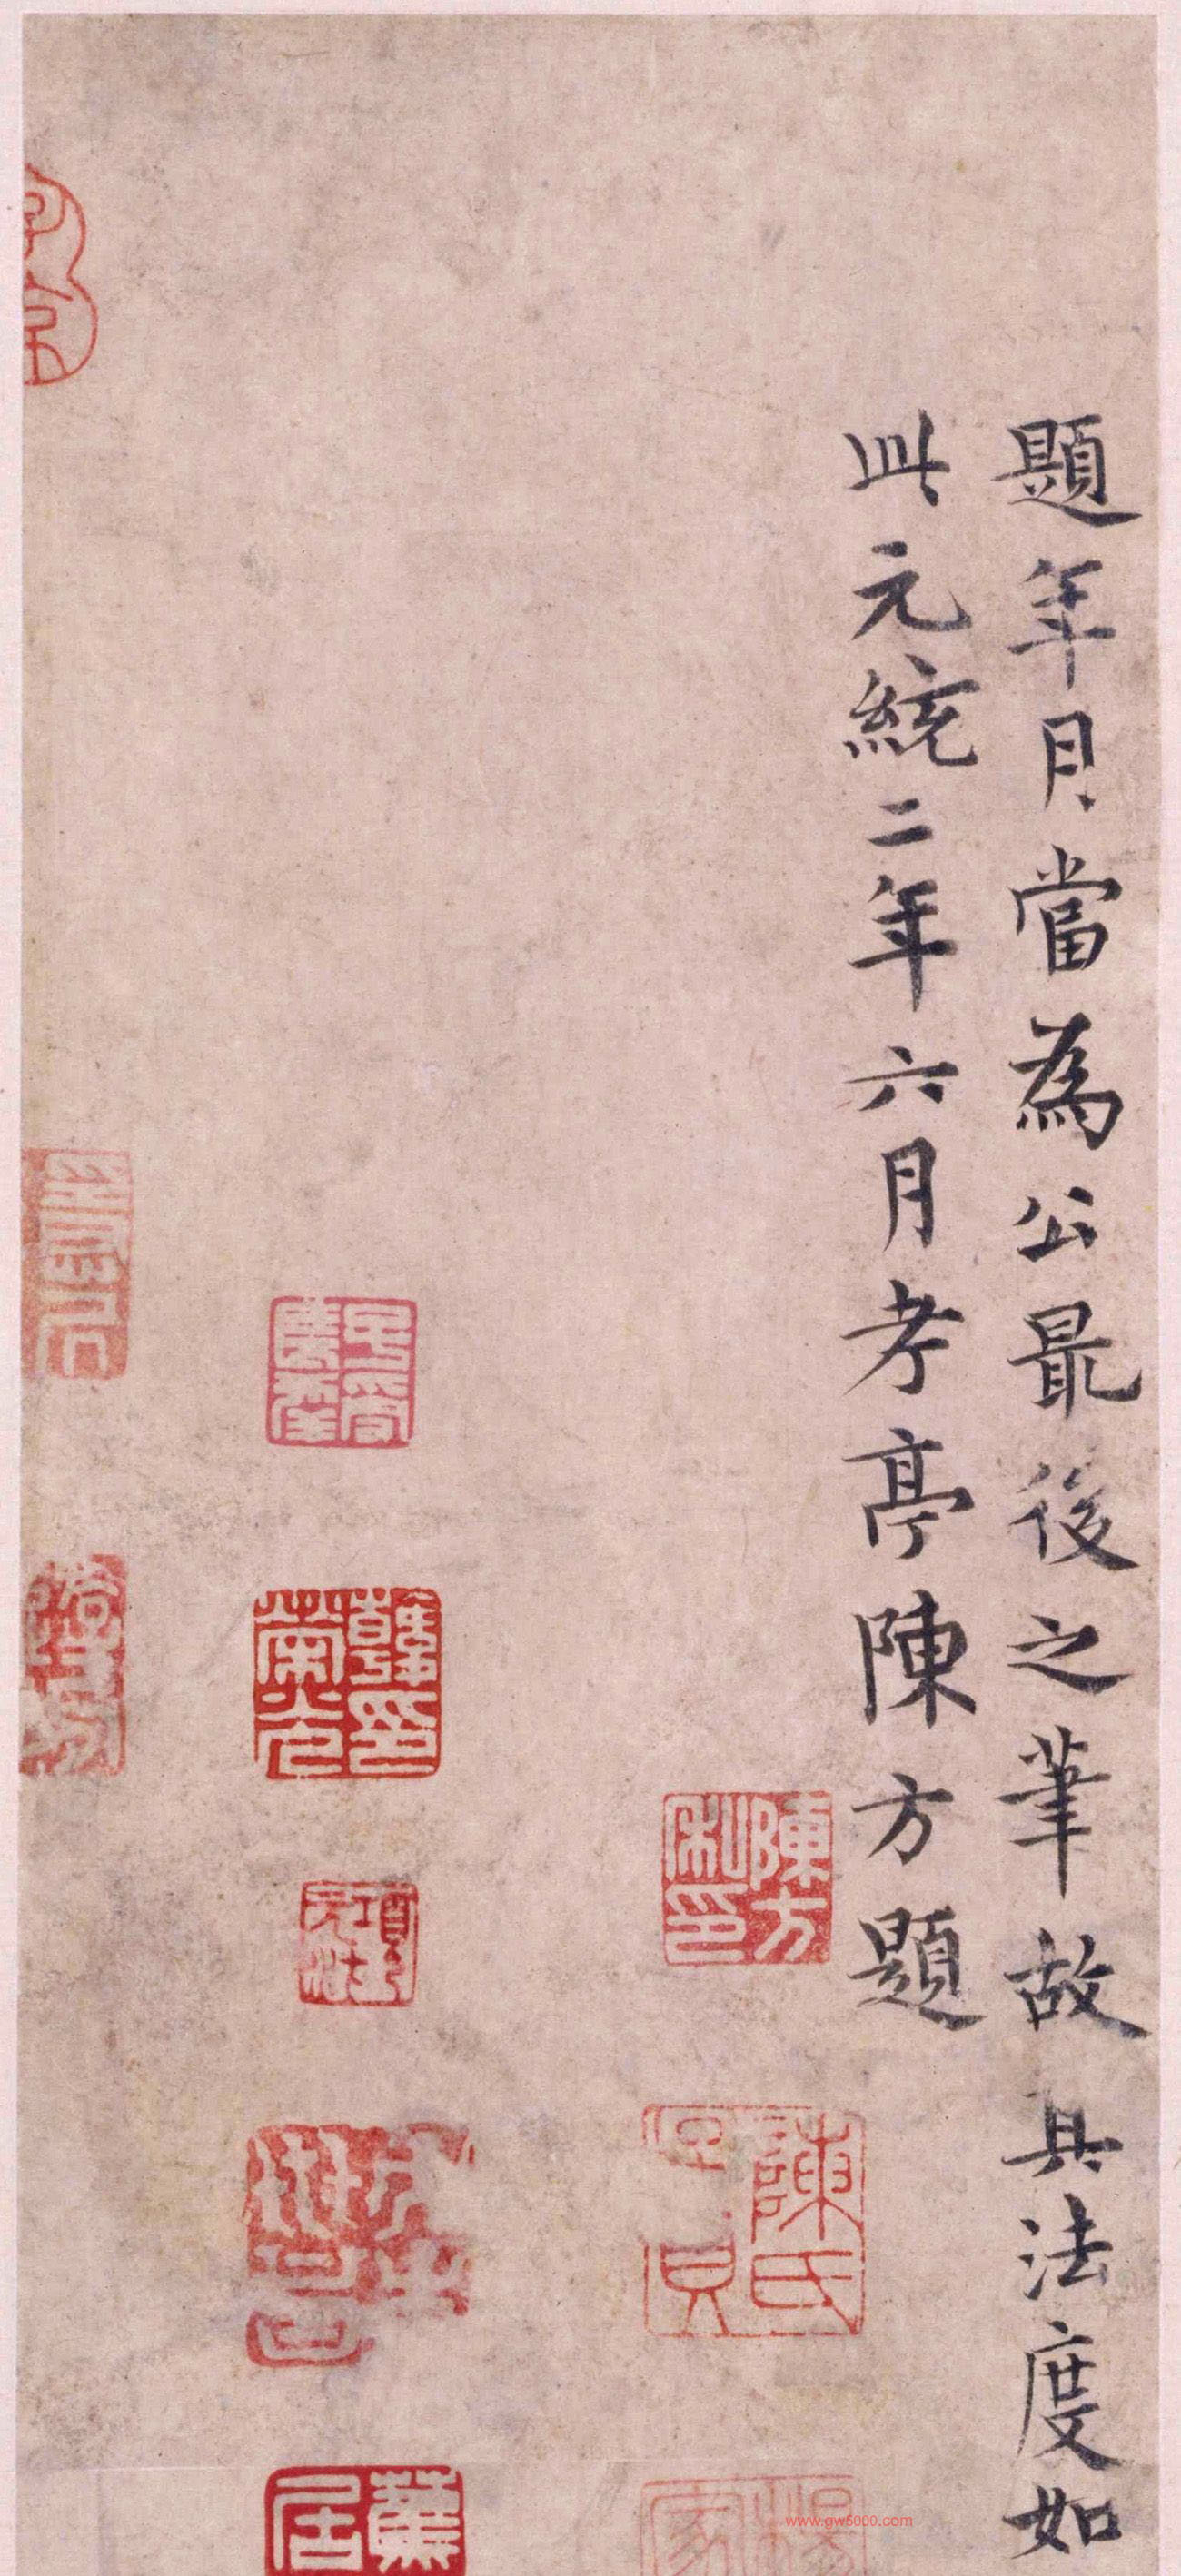 題年月當為公最後之筆故其法度如
此元統二年六月孝亭陳方題
陳方私印
陳氏子貞
韓印榮光
www.gw5000.com